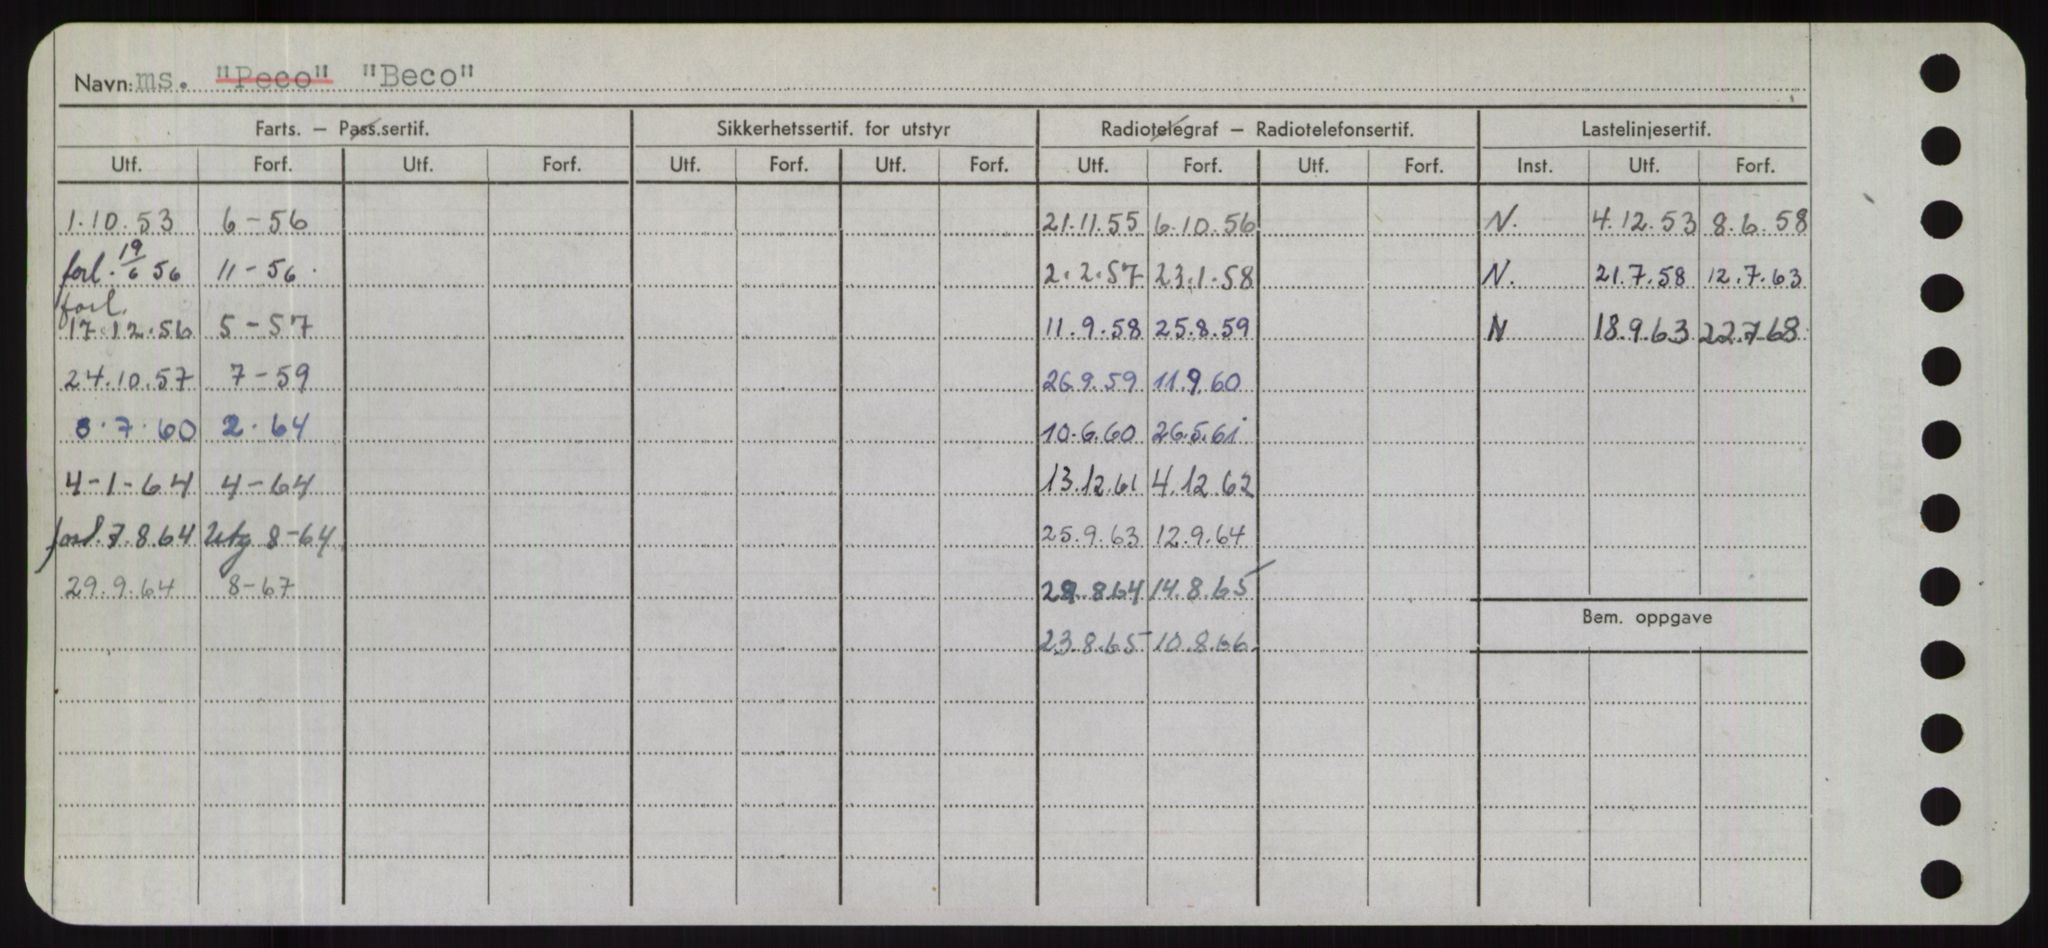 Navn: ms. "Peco" "Beco"
Farts. – Pass.sertif. Sikkerhetssertif. for utstyr Radiotelegraf – Radiotelefonsertif. Lastelinjesertif.
Utf. Forf. Utf. Forf. Utf. Forf. Utf. Forf. Utf. Forf. Utf. Forf. Inst. Utf. Forf.
1.10.53 6-56 21.11.55 6.10.56 N. 4.12.53 8.6.58
forl. 19/6 56 11-56. 2.2.57 23.1.58 N. 21.7.58 12.7.63
forl.
17.12.56 5-57 11.9.58 25.8.59 N 18.9.63 22.7.68
24.10.57 7-59 26.9.59 11.9.60
8.7.60 2.64 10.6.60 26.5.61
4-1-64 4-64 13.12.61 4.12.62
forl. 7.8.64 Utg 8-64 25.9.63 12.9.64
29.9.64 8-67 28.8.64 14.8.65
Bem. oppgave
23.8.65 10.8.66